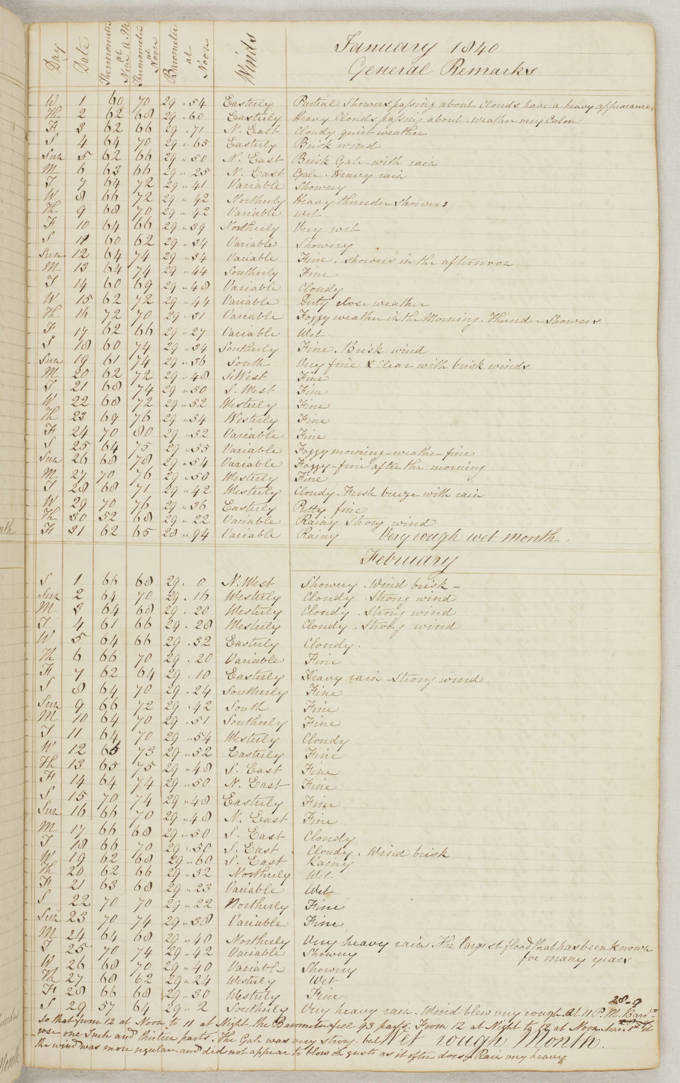 Day Date Thermometer at Nine A.M. Thermometer at Noon Barometer at Noon Winds January 1840
General Remarks
W 1 60 70 29 .. 54 Easterly Partial Showers passing about Clouds have a heavy appearance
Th 2 62 68 29 .. 60 Easterly Heavy Clouds passing about - Weather very
F 3 62 66 29 .. 71 N. East Cloudy quiet weather
S 4 64 70 29 .. 63 Easterly Brisk wind
Sun 5 62 66 29 .. 50 N. East Brisk Gale with rain
M 6 63 66 29 .. 25 N. East Gale. Heavy rain
T 7 64 72 29 .. 41 Variable Showery
W 8 66 72 29 .. 42 Northerly Heavy thunder Showers
Th 9 68 70 29 .. 42 Variable Wet
F 10 64 66 29 .. 39 Northerly Very wet
S 11 60 62 29 .. 34 Variable Showery
Sun 12 64 74 29 .. 34 Variable Fine. showers in the afternoon
M 13 64 74 29 .. 44 Southerly Fine
T 14 60 69 29 .. 48 Variable Cloudy
W 15 62 72 29 .. 44 Variable close weather
Th 16 72 70 29 .. 31 Variable Foggy weather in the Morning. Thunder Showers
F 17 62 66 29 .. 27 Variable Wet
S 18 60 74 29 .. 34 Southerly Fine. Brisk wind
Sun 19 61 74 29 .. 36 South Very fine & clear with brisk winds
M 20 62 72 29 .. 48 S. West Fine
T 21 68 74 29 .. 30 S. West Fine
W 22 68 72 29 .. 32 Westerly Fine
Th 23 69 76 29 .. 34 Westerly Fine
F 24 70 80 29 .. 32 Variable Fine
S 25 64 75 29 .. 35 Variable Foggy morning - weather fine
Sun 26 68 78 29 .. 54 Variable Foggy - fine after the morning
M 27 70 76 29 .. 50 Westerly Fine
T 28 68 71 29 .. 42 Westerly Cloudy. Fresh breeze with rain
W 29 70 76 29 .. 36 Easterly Pretty fine
Th 30 52 68 29 .. 22 Variable Rainy Strong wind
F 31 62 65 28 .. 94 Variable Rainy Very rough wet month.
February
S 1 66 68 29 . 0 N. West Showery. Wind brisk -
Sun 2 64 70 29 . 16 Westerly Cloudy Strong wind
M 3 64 68 29 . 20 Westerly Cloudy. Strong wind
T 4 61 66 29 . 28 Westerly Cloudy. Strong wind
W 5 64 66 29 . 32 Easterly Cloudy.
Th 6 66 70 29 . 20 Variable Fine
F 7 62 64 29 . 10 Easterly Heavy rain Strong wind
S 8 64 70 29 . 24 Southerly Fine
Sun 9 66 72 29 . 42 South Fine
M 10 64 70 29 .. 51 Southerly Fine
T 11 64 70 29 .. 54 Westerly Cloudy
W 12 66 73 29 .. 52 Easterly Fine
Th 13 65 75 29 .. 48 S. East Fine
F 14 64 74 29 .. 50 N. East Fine
S 15 70 74 29 .. 48 Easterly Fine
Sun 16 66 70 29 .. 48 N. East Fine
M 17 66 68 29 .. 50 S. East Cloudy
T 18 66 70 29 .. 50 S. East Cloudy. Wind brisk
W 19 62 68 29 .. 60 S. East Rainy
Th 20 62 66 29 .. 32 Northerly Wet
F 21 63 68 29 .. 23 Variable Wet
S 22 70 70 29 .. 22 Northerly Fine
Sun 23 70 74 29 .. 38 Variable Fine
M 24 64 68 29 .. 40 Northerly Very heavy rain. The largest flood that has been known
T 25 70 74 29 .. 42 Variable Showery for many years
W 26 68 70 29 .. 40 Variable Showery
Th 27 68 62 29 .. 24 Westerly Wet
F 28 66 68 29 .. 30 Westerly Fine
S 29 57 64 29 .. 2 Southerly Very heavy rain. Wind blew very rough. At 11 P.M. Baro. 28-9
So that from 12 at Noon to 11 at Night the Barometer fell 93 parts. From 12 at Night to 12 at Noon
rose one Inch and thirteen parts. The Gale was very strong but Wet rough Month.
the wind was more regular and did not appear to blow in gusts as it often does. Rain very heavy